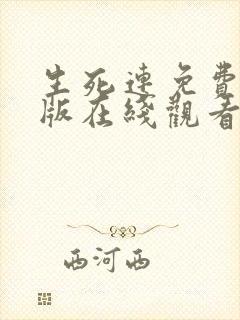 生死連免費
版在綫觀看
西河西